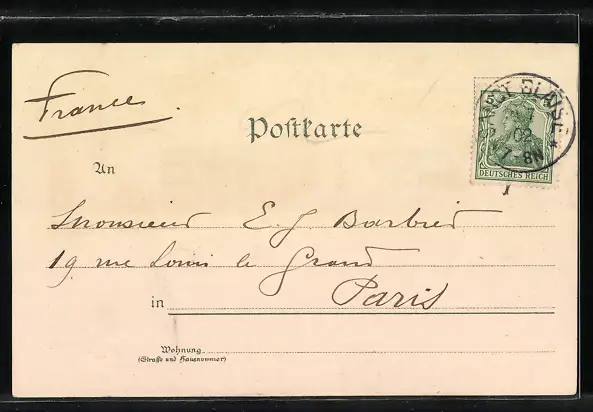 France
Postkarte
SANCY BLAISE
02
7-8N
DEUTSCHES REICH
An
Monsieur E. J. Barbier
19 rue Louis le Grand
in Paris
Wohnung
(Straße und Hausnummer)